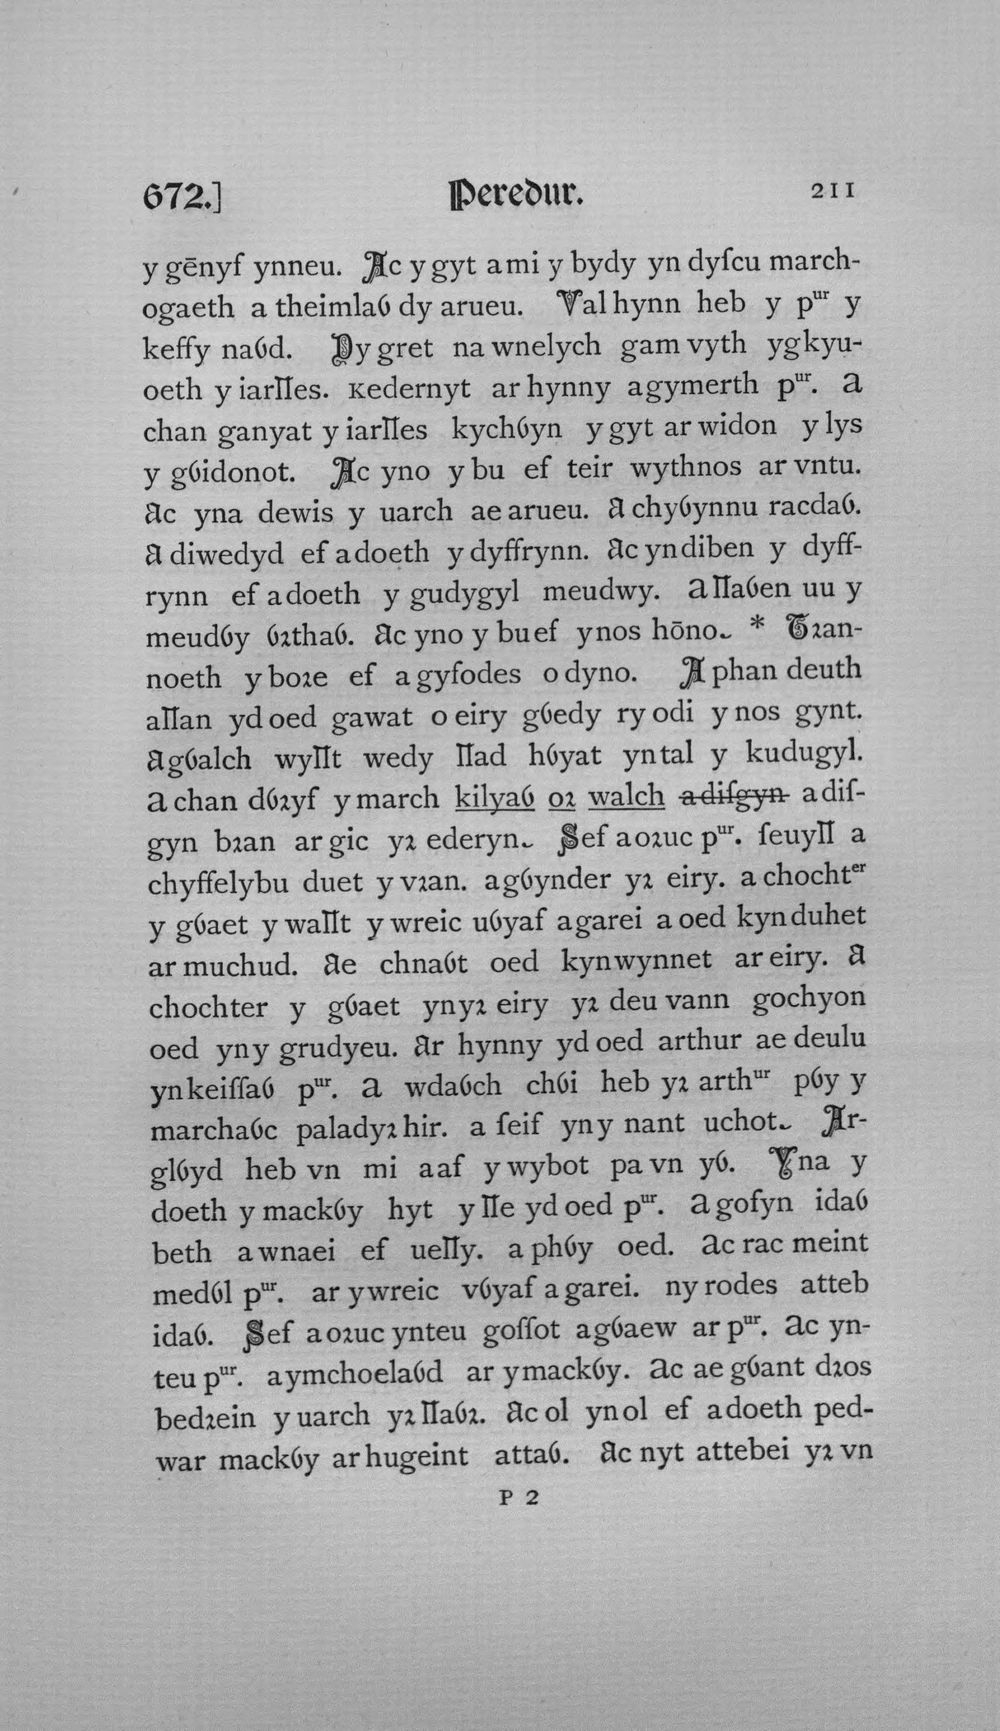 672.] Peredur. 211
y gēnyf ynneu. Ac y gyt a mi y bydy yn dyſcu march-
ogaeth a theimlaỽ dy arueu. Val hynn heb y pᵘʳ y
keffy naỽd. Dy gret na wnelych gam vyth ygkyu-
oeth y iarỻes. Kedernyt ar hynny agymerth pᵘʳ. a
chan ganyat y iarỻes kychỽyn y gyt ar widon y lys
y gỽidonot. Ac yno y bu ef teir wythnos ar vntu.
ac yna dewis y uarch ae arueu. a chyỽynnu racdaỽ.
a diwedyd ef adoeth y dyffrynn. ac yn diben y dyff-
rynn ef adoeth y gudygyl meudwy. a ỻaỽen uu y
meudỽy ỽꝛthaỽ. ac yno y bu ef ynos hōno. * Tꝛan-
noeth y boꝛe ef agyfodes odyno. A phan deuth
aỻan yd oed gawat o eiry gỽedy ry odi y nos gynt.
agỽalch wyỻt wedy ỻad hỽyat yn tal y kudugyl.
a chan dỽꝛyf y march kilyaỽ oꝛ walch ~~adiſgyn~~ a diſ-
gyn bꝛan ar gic yꝛ ederyn. Sef aoꝛuc pᵘʳ. ſeuyỻ a
chyffelybu duet y vꝛan. agỽynder yꝛ eiry. a chochtᵉʳ
y gỽaet y waỻt y wreic uỽyaf agarei a oed kyn duhet
ar muchud. ae chnaỽt oed kynwynnet ar eiry. a
chochter y gỽaet ynyꝛ eiry yꝛ deu vann gochyon
oed yny grudyeu. ar hynny yd oed arthur ae deulu
yn keiſſaỽ pᵘʳ. a wdaỽch chỽi heb yꝛ arthᵘʳ pỽy y
marchaỽc paladyꝛ hir. a ſeif yny nant uchot. Ar-
glỽyd heb vn mi aaf y wybot pa vn yỽ. Yna y
doeth y mackỽy hyt y ỻe yd oed pᵘʳ. a gofyn idaỽ
beth a wnaei ef ueỻy. a phỽy oed. ac rac meint
medỽl pᵘʳ. ar y wreic vỽyaf a garei. ny rodes atteb
idaỽ. Sef aoꝛuc ynteu goſſot agỽaew ar pᵘʳ. ac yn-
teu pᵘʳ. aymchoelaỽd ar y mackỽy. ac ae gỽant dꝛos
bedꝛein y uarch yꝛ ỻaỽꝛ. ac ol yn ol ef adoeth ped-
war mackỽy ar hugeint attaỽ. ac nyt attebei yꝛ vn
P 2